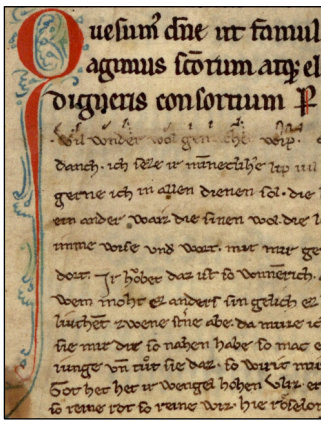 Quesum᷒ dn̄e ut famul
agimus sc̄orum atq; el
digneris consortium P
Wil wnder wol gemachet wip.
danch. ich seze ir minneclihē lip in
gerne ich in allen dienen sol. die
ein ander waiz die sinen wol. die l
mine wise vnd wort. mit mir ge
dort. Ir hǒbet daz ist so wnnerich.
wem moht ez anders sin gelich ez
liuhtēt zwene st̄ne abe. da muze ich
sie mir die so nahen habe. so mac e
iunge vn̄ tůt sie daz. so wirt mir
Got het ir wengel hohen vliz. er
so reine rot so reine wiz. hie roseloh